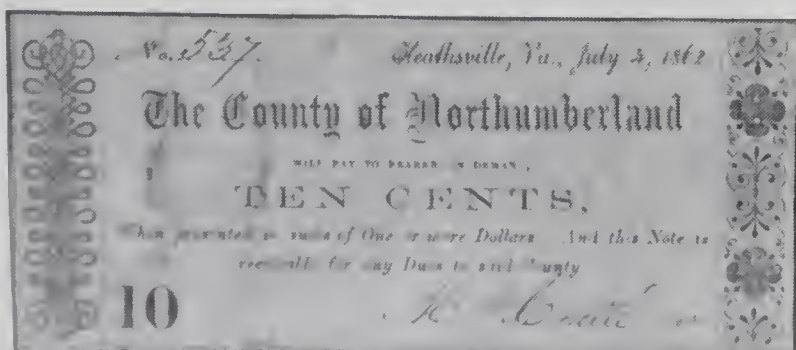 No. 537. Heathsville, Va., July 4, 1862
The County of Northumberland
WILL PAY TO BEARER ON DEMAND,
TEN CENTS,
When presented in sums of One or more Dollars. And this Note is
receivable for any Dues to said County
10